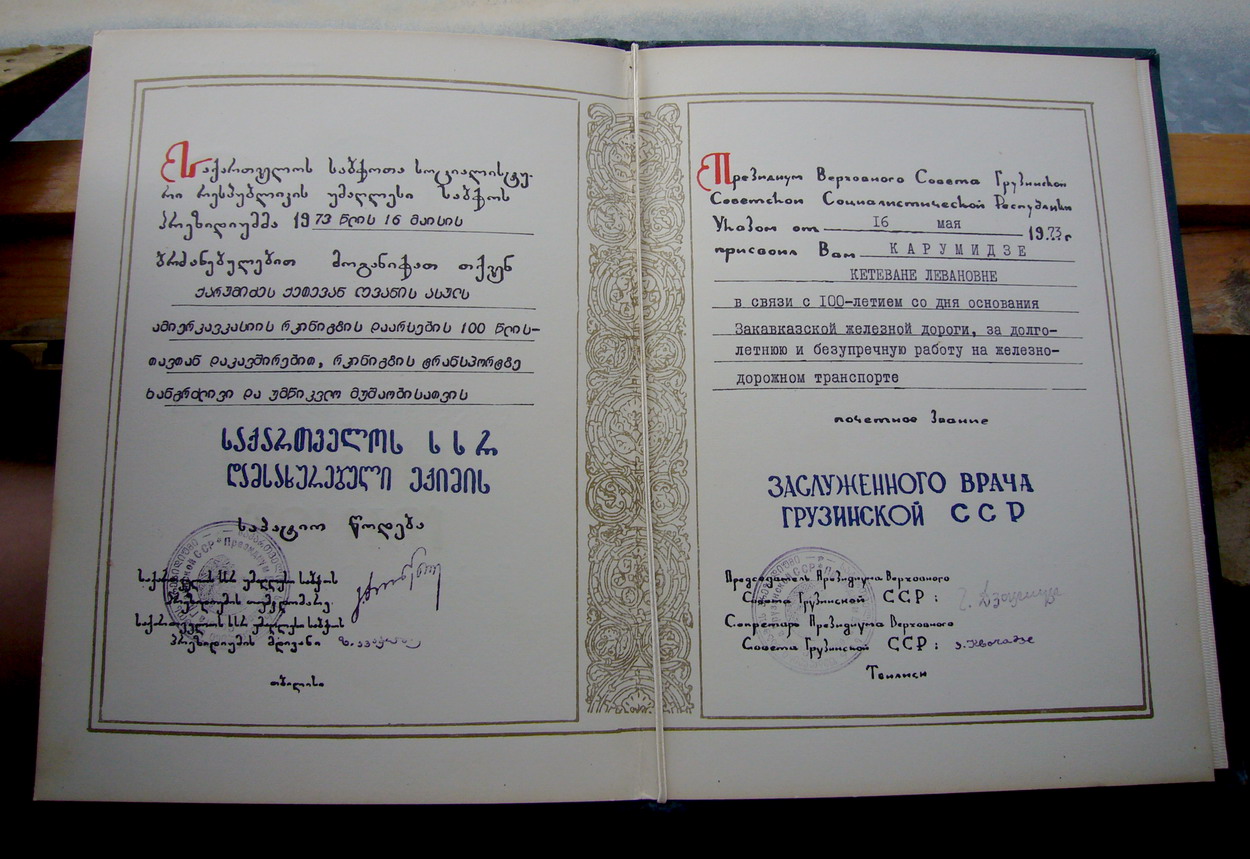 საქართველოს საბჭოთა სოციალისტუ-
რი რესპუბლიკის უმაღლესი საბჭოს
პრეზიდიუმმა 1973 წლის 16 მაისის
ბრძანებულებით მოგანიჭათ თქვენ
ქარუმიძეს ქეთევან ლევანის ასულს
ამიერკავკასიის რკინიგზის დაარსების 100 წლის-
თავთან დაკავშირებით, რკინიგზის ტრანსპორტზე
ხანგრძლივი და უმწიკვლო მუშაობისათვის
საქართველოს სსრ
დამსახურებული ექიმის
საპატიო წოდება
საქართველოს სსრ უმაღლესი საბჭოს
პრეზიდიუმის თავმჯდომარე
საქართველოს სსრ უმაღლესი საბჭოს
პრეზიდიუმის მდივანი
თბილისი
Президиум Верховного Совета Грузинской
Советской Социалистической Республики
Указом от 16 мая 1973г
присвоил Вам КАРУМИДЗЕ
КЕТЕВАНЕ ЛЕВАНОВНЕ
в связи с 100-летием со дня основания
Закавказской железной дороги, за долго-
летнюю и безупречную работу на железно-
дорожном транспорте
почетное звание
ЗАСЛУЖЕННОГО ВРАЧА
ГРУЗИНСКОЙ ССР
Председатель Президиума Верховного
Совета Грузинской ССР: Г. Дзоценидзе
Секретарь Президиума Верховного
Совета Грузинской ССР: З. Квачадзе
Тбилиси